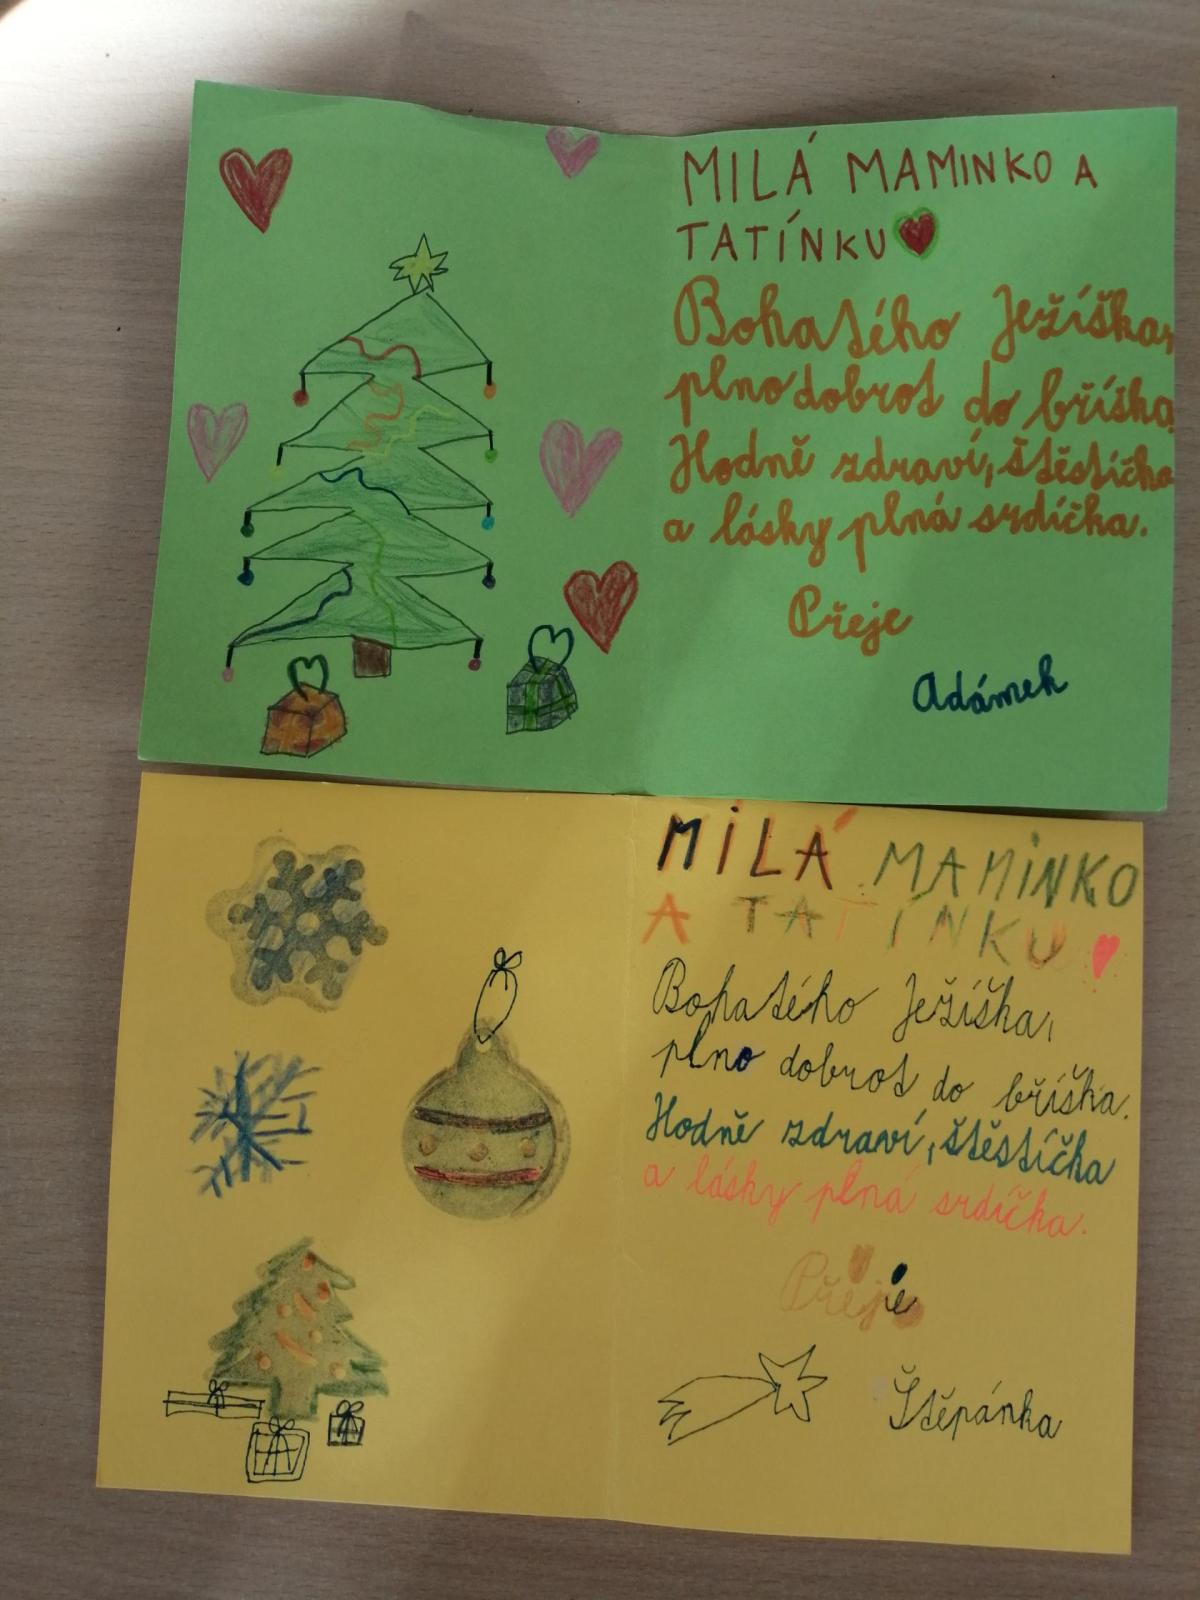 MILÁ MAMINKO A
TATÍNKU
Bohatého Ježíška,
plno dobrot do bříška.
Hodně zdraví, štěstíčka
a lásky plná srdíčka.
Přeje
Adámek
MILÁ MAMINKO
A TATÍNKU
Bohatého Ježíška,
plno dobrot do bříška.
Hodně zdraví, štěstíčka
a lásky plná srdíčka.
Přeje
Štěpánka